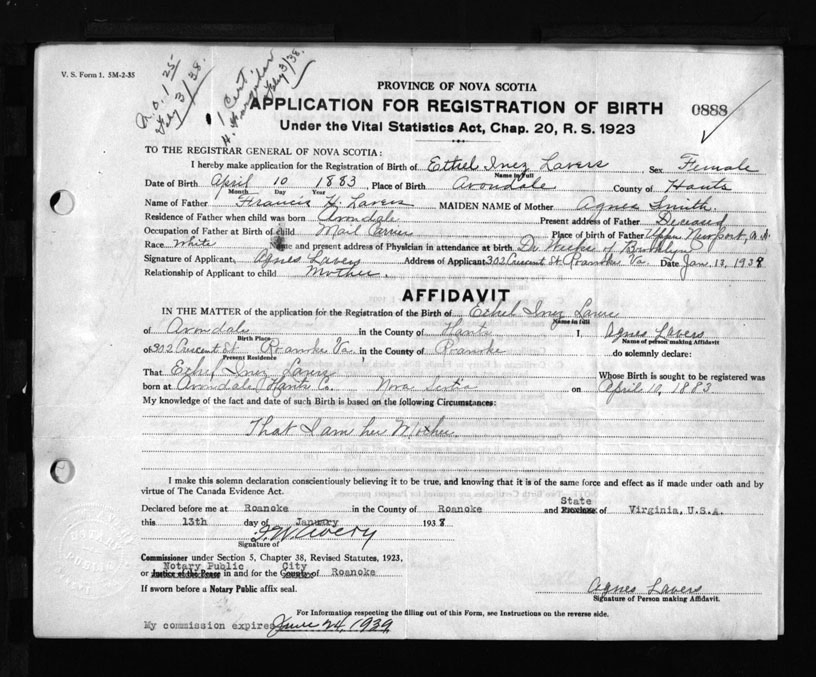 V. S. Form 1. 5M-2-35
M.O. 1.25
Feb 3/38.
1 Cert.
Feb 3/38.
PROVINCE OF NOVA SCOTIA
APPLICATION FOR REGISTRATION OF BIRTH
0888
Under the Vital Statistics Act, Chap. 20, R. S. 1923
TO THE REGISTRAR GENERAL OF NOVA SCOTIA:
I hereby make application for the Registration of Birth of Ethel Inez Lavers Sex Female
Name in full
Date of Birth April 10 1883, Place of Birth Avondale County of Hants
Month Day Year
Name of Father Francis H. Lavers MAIDEN NAME of Mother Agnes Smith.
Residence of Father when child was born Avondale Present address of Father Deceased
Occupation of Father at Birth of child Mail Carrier Place of birth of Father Upper Newport, N.S.
Race White Name and present address of Physician in attendance at birth Dr. of Brooklyn
Signature of Applicant, Agnes Lavers Address of Applicant 302 Crescent St. Roanoke Va. Date Jan. 13, 1938
Relationship of Applicant to child Mother.
AFFIDAVIT
IN THE MATTER of the application for the Registration of the Birth of Ethel Inez Lavers
Name in full
of Avondale in the County of Hants I, Agnes Lavers
Birth Place Name of person making Affidavit
of 302 Crescent St Roanoke Va. in the County of Roanoke do solemnly declare:
Present Residence
That Ethel Inez Lavers Whose Birth is sought to be registered was
born at Avondale Hants Co. Nova Scotia on April 10, 1883
My knowledge of the fact and date of such Birth is based on the following Circumstances:
That I am her Mother.
I make this solemn declaration conscientiously believing it to be true, and knowing that it is of the same force and effect as if made under oath and by
virtue of The Canada Evidence Act.
State
Declared before me at Roanoke in the County of Roanoke and Province of Virginia, U.S.A.
this 13th day of January 1938
Signature of
Commissioner under Section 5, Chapter 38, Revised Statutes, 1923,
Notary Public City
or Justice of the Peace in and for the County of Roanoke
If sworn before a Notary Public affix seal.
Agnes Lavers
Signature of Person making Affidavit.
For Information respecting the filling out of this Form, see Instructions on the reverse side.
My commission expires June 24, 1939